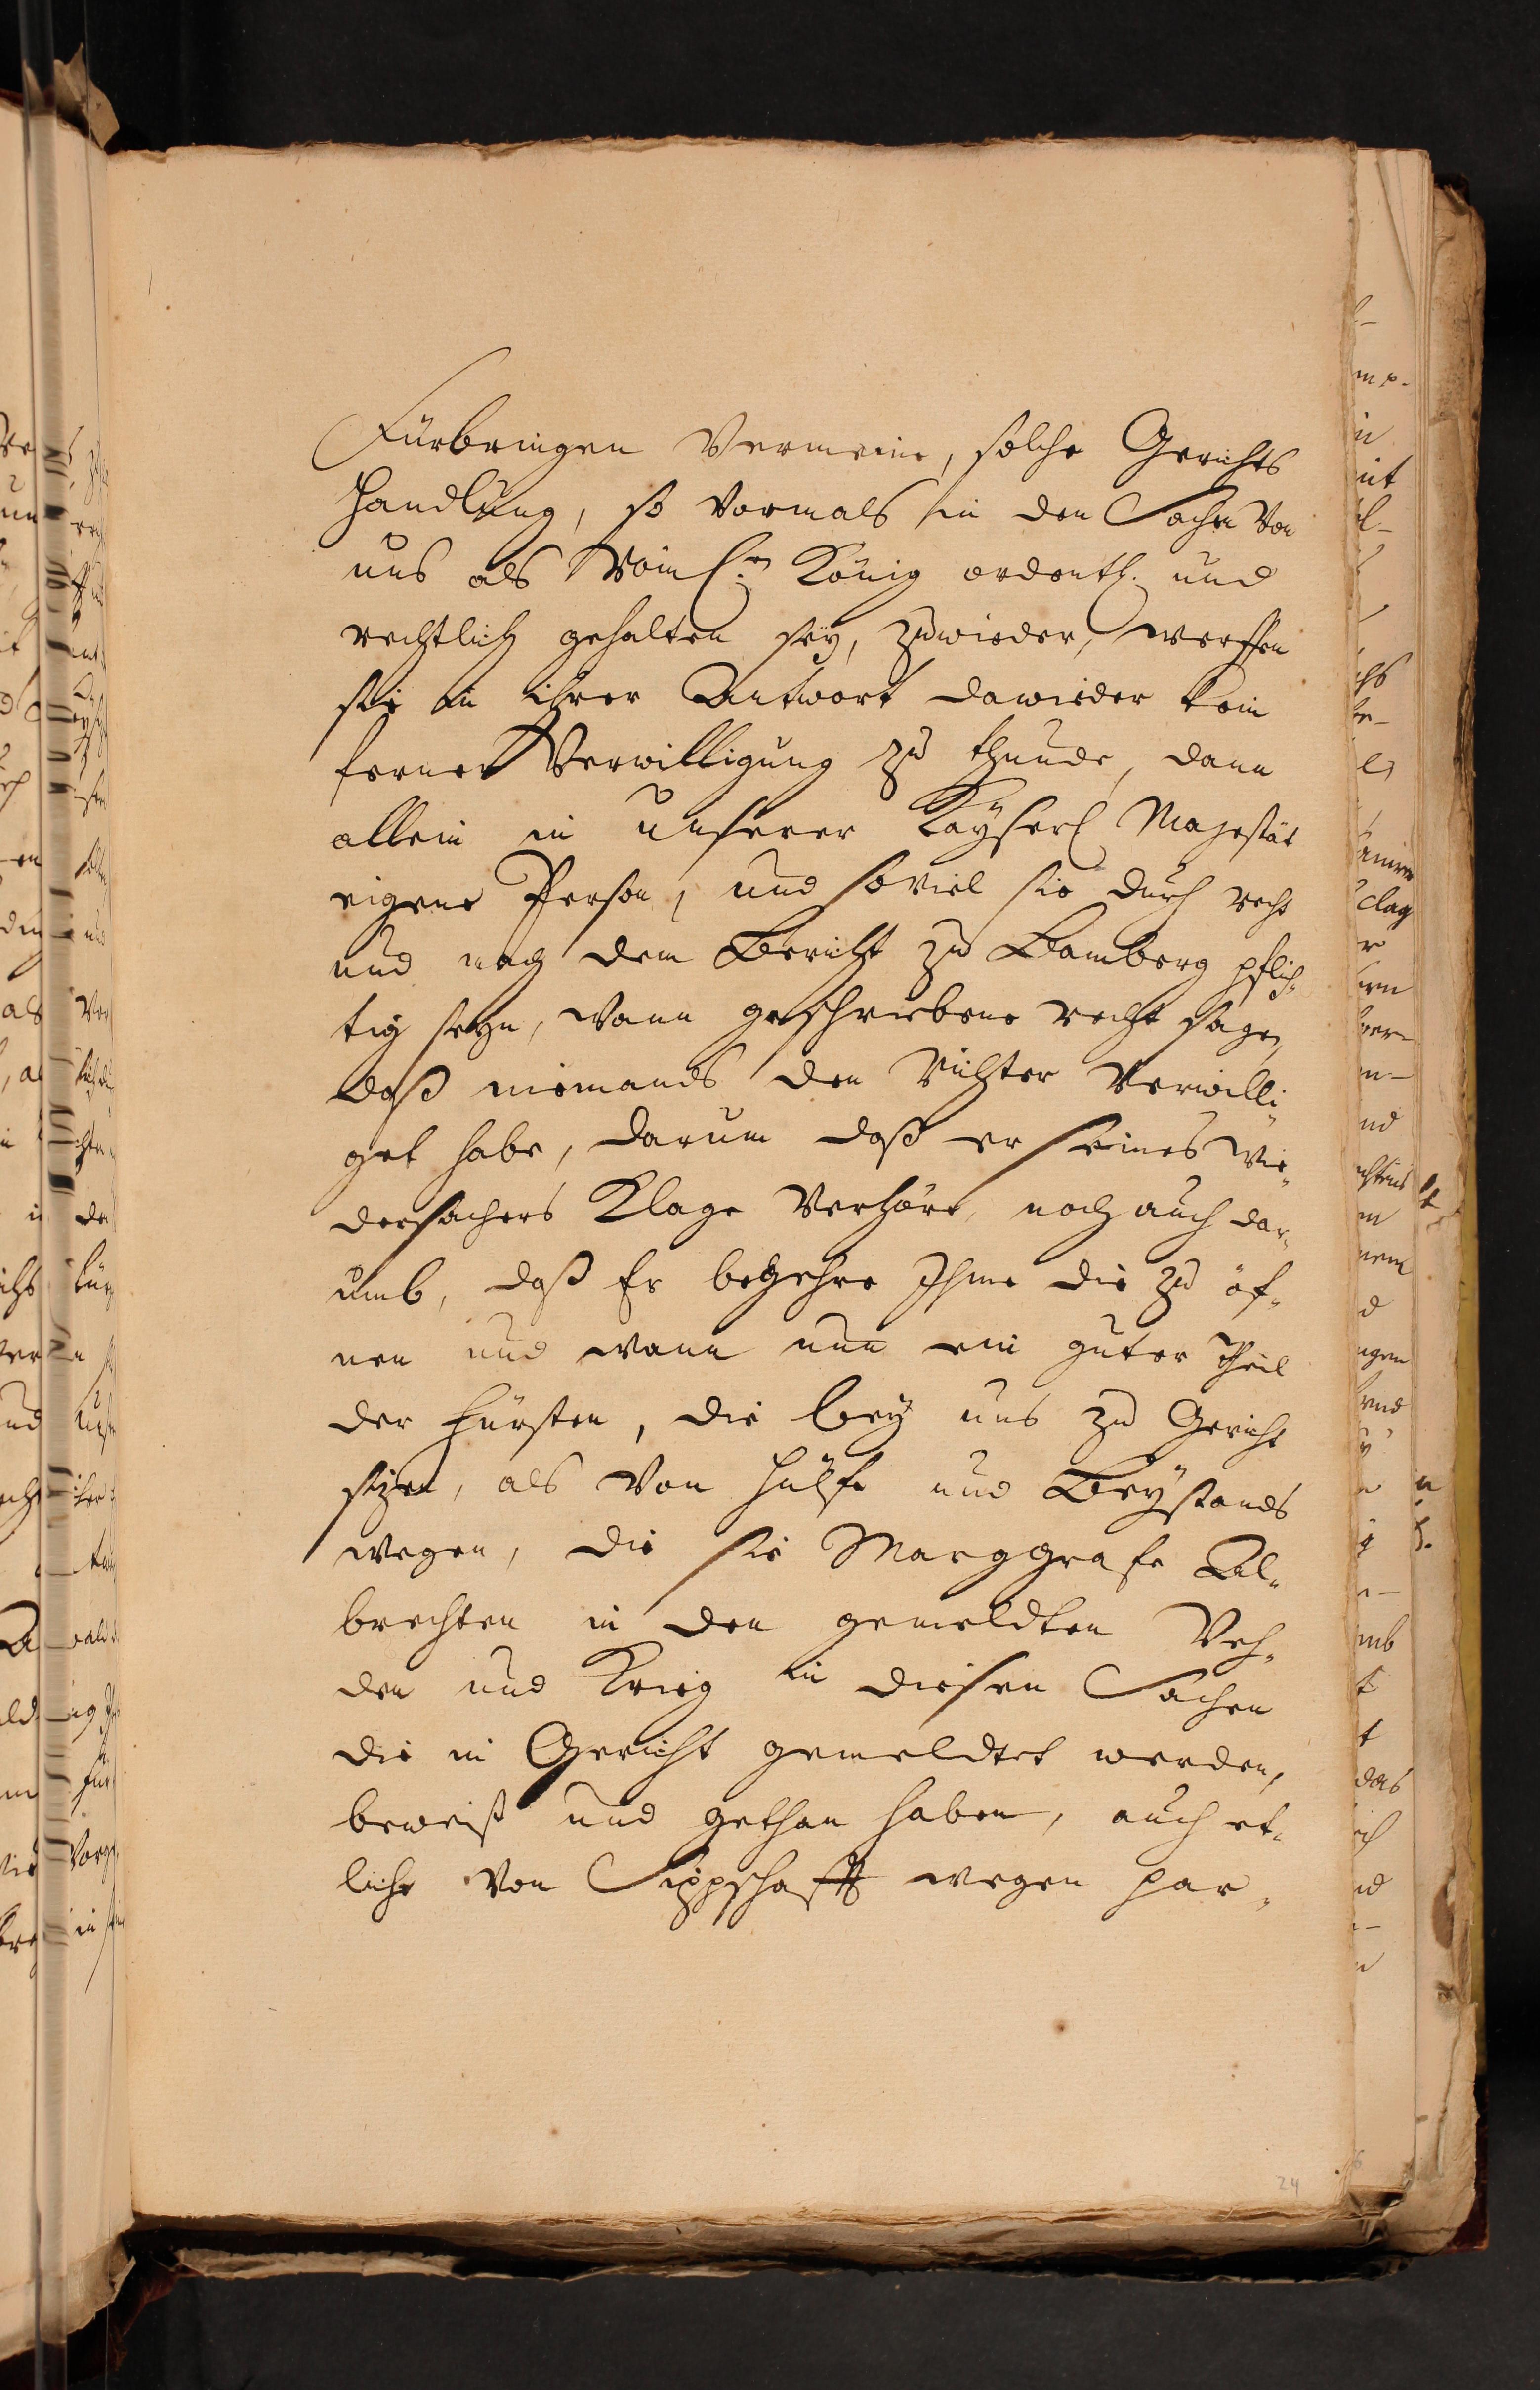 Fürbringen Vermeine, solche Gerichts
Handlung, so vormals in den Sachen von
uns als Röm. König ordentl. und
rechtlich gehalten seÿ, zuwieder,
sie in ihrer Antwort dawieder kein
ferner Verwilligung zu thunde, dann
allein in unserer Kaÿserl Majestät
eigene Person, und soviel sie durch recht
und nach dem Bericht zu Bamberg pflich„
tig seyn, wann geschriebene recht sagen,
daß niemands den Richter verwilli„
get habe, darum daß er seines Wie„
dersachers Klage verhöre, noch auch dar„
umb, daß Er begehre Ihme die zu öf„
nen und wann nun ein guter Theil
der Fürsten, die beÿ uns zu Gericht
sizen, als von Hülfe und Beÿstands
wegen, die sie Marggrafe Al„
brechten in den gemeldten Veh„
den und Krieg in diesen Sachen
die in Gericht gemeldtet werden,
beweist und gethan haben, auch et„
liche von Sippschafft wegen par„
24